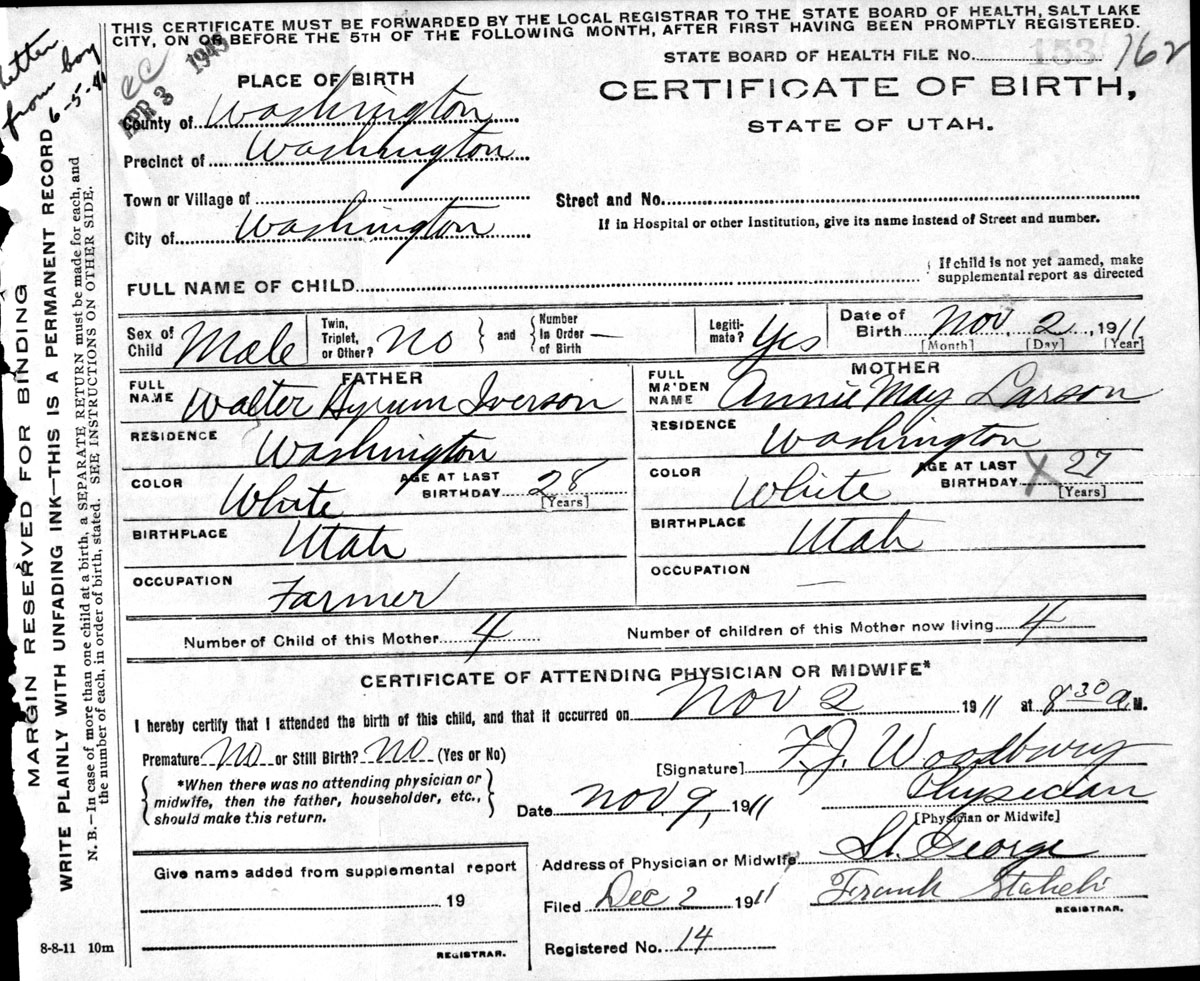 THIS CERTIFICATE MUST BE FORWARDED BY THE LOCAL REGISTRAR TO THE STATE BOARD OF HEALTH, SALT LAKE
CITY, ON OR BEFORE THE 5TH OF THE FOLLOWING MONTH, AFTER FIRST HAVING BEEN PROMPTLY REGISTERED.
STATE BOARD OF HEALTH FILE No. 153 162
CERTIFICATE OF BIRTH,
STATE OF UTAH.
letter
from boy
6-5-41
APR 3
PLACE OF BIRTH
County of Washington
Precinct of Washington
Town or Village of
City of Washington
Street and No.
If in Hospital or other Institution, give its name instead of Street and number.
FULL NAME OF CHILD
If child is not yet named, make
supplemental report as directed
Sex of Child Male
Twin, Triplet, or Other? No and Number In Order of Birth —
Legiti-mate? Yes
Date of Birth Nov 2, 1911
[Month] [Day] [Year]
FATHER
FULL NAME Walter Hyrum Iverson
RESIDENCE Washington
COLOR White AGE AT LAST BIRTHDAY 28 [Years]
BIRTHPLACE Utah
OCCUPATION Farmer
MOTHER
FULL MAIDEN NAME Annie May Larson
RESIDENCE Washington
COLOR White AGE AT LAST BIRTHDAY X 27 [Years]
BIRTHPLACE Utah
OCCUPATION —
Number of Child of this Mother 4 Number of children of this Mother now living 4
CERTIFICATE OF ATTENDING PHYSICIAN OR MIDWIFE*
I hereby certify that I attended the birth of this child, and that it occurred on Nov 2 1911 at 8 30 a M.
Premature No or Still Birth? No (Yes or No)
*When there was no attending physician or
midwife, then the father, householder, etc.,
should make this return.
[Signature] F. J. Woodbury
Date Nov 9, 1911 Physician
[Physician or Midwife]
Address of Physician or Midwife St. George
Filed Dec 2 1911 Frank Staheli
REGISTRAR.
Registered No. 14
Give name added from supplemental report
19
REGISTRAR.
8-8-11 10m
MARGIN RESERVED FOR BINDING
WRITE PLAINLY WITH UNFADING INK—THIS IS A PERMANENT RECORD
N. B.—In case of more than one child at a birth, a SEPARATE RETURN must be made for each, and
the number of each, in order of birth, stated. SEE INSTRUCTIONS ON OTHER SIDE.